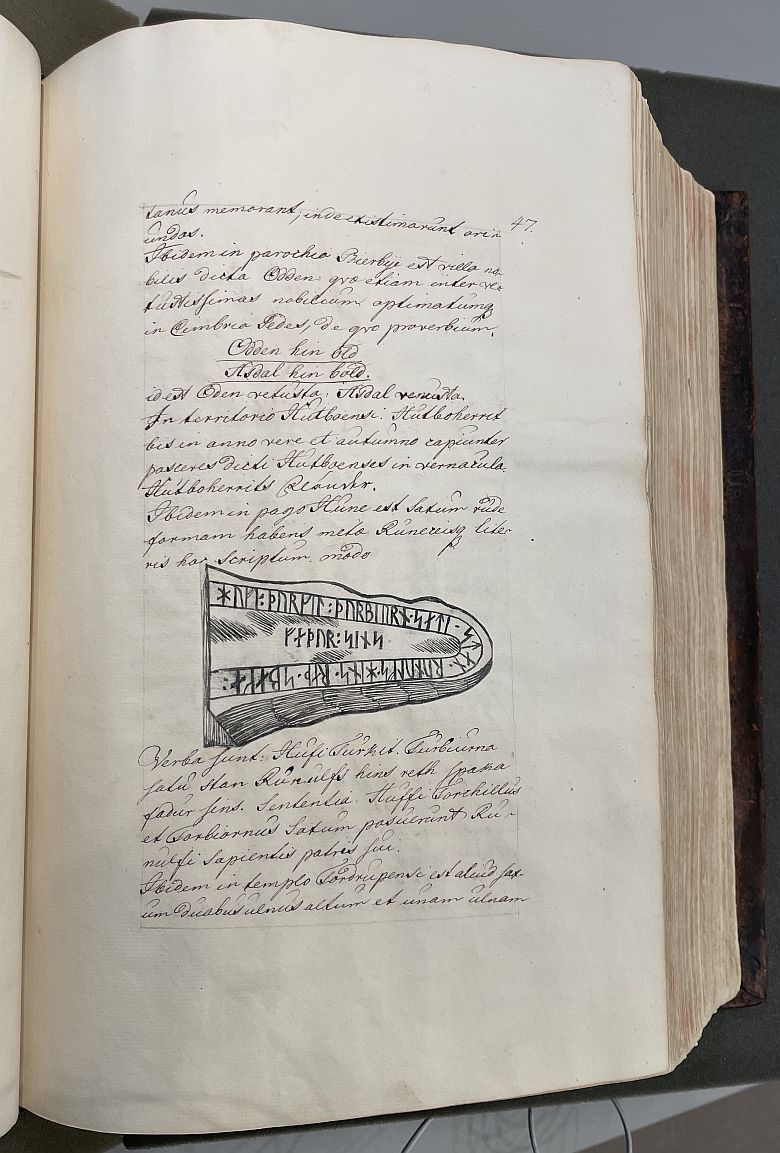 47.
tanus memorant, inde existimarunt oriu
undas.
Ibidem in parochia Bierbÿe est villa no-
bilis dicta Odden qvæ etiam inter ve-
tustissimas nobilium optimatumq
in Cimbria Sedes, de qvo proverbium,
Odden hin old
Asdal hin bold.
id est Oden vetusta: Asdal venusta.
In territorio Hutboensi: Hutboherrit
bis in anno vere et autumno capiunter
passeres dicti Hutboenses in vernacula
Hutboherrits
Ibidem in pago Hune est Saxum rude
formam habens metæ Runeisq lite-
ris hoc scriptum modo
ᚼᚢᚠᛁ:ᚦᚢᚱᚴᛁᛚ:ᚦᚢᚱᛒᛁᚢᚱᚾ·ᛋᛅᛏᚢ·ᛋᛏᛁᚾ
ᚱᚢᚾᚢᛚᚠᛋ·ᚼᛁᚾᛋ·ᚱᛅᚦ·ᛋᛒᛅᚴᛅ:
ᚠᛅᚦᚢᚱ:ᛋᛁᚾᛋ
Verba sunt: Hufi Turkil. Turbiurna
satu stan Runulfs hins reth spaka
fadur sins. Sententia. Huffi Torchillus
et Torbiornus Saxum posuerunt Ru-
nulfi Sapientis patris sui.
Ibidem in templo Tordrupensi est aliud sax-
um duabus ulnus altum et unam ulnam